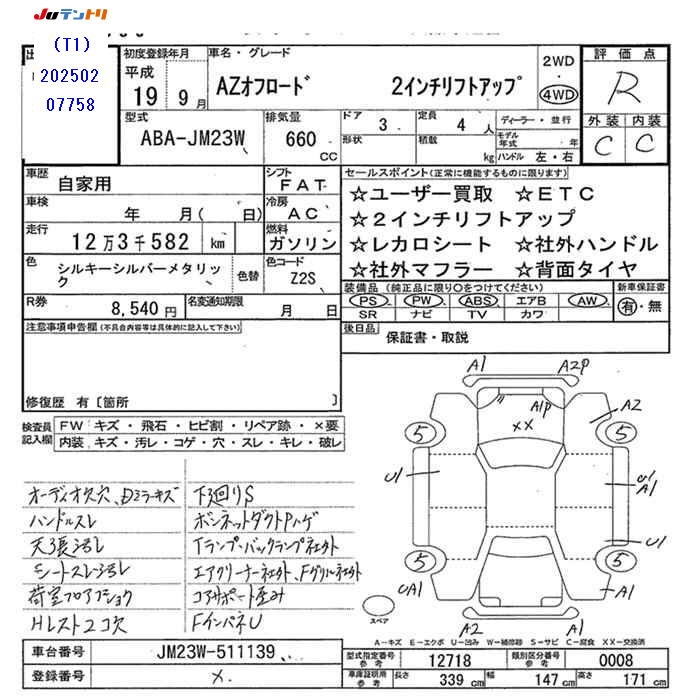 JUテントリ
(T1)
202502
07758
初度登録年月
平成
19 9月
車名・グレード
AZオフロード 2インチリフトアップ
2WD
・
4WD
評価点
R
外装 内装
C C
型式
ABA-JM23W
排気量
660
CC
ドア 3
形状
定員 4 人
積載 kg
ディーラー・並行
モデル年式 年
ハンドル 左・右
車歴
自家用
シフト
FAT
セールスポイント(正常に機能するものに限ります)
☆ユーザー買取 ☆ETC
☆2インチリフトアップ
☆レカロシート ☆社外ハンドル
☆社外マフラー ☆背面タイヤ
車検
年 月( 日)
冷房
AC
走行
12万3千582 km
燃料
ガソリン
色
シルキーシルバーメタリック
色替
色コード
Z2S
装備品(純正品に限り○をつけてください)
PS PW ABS エアB AW
SR ナビ TV カワ
新車保証書
有・無
R券
8,540円
名変通知期限
月 日
後日品
保証書・取説
注意事項申告欄(不具合内容等は具体的に記入して下さい)
修復歴 有〔箇所 〕
検査員記入欄
FW キズ・飛石・ヒビ割・リペア跡・×要
内装 キズ・汚レ・コゲ・穴・スレ・キレ・破レ
オーディオ欠穴、Dミラーキズ
ハンドルスレ
天張汚レ
シートスレ汚レ
荷室フロアフショク
Hレスト2コ欠
下廻りS
ボンネットダクトPハゲ
Tランプ・バックランプ社外
エアクリーナー社外、Fグリル社外
コアサポート歪み
FインパネU
A1 A2P
A1P
A2
XX
5 5
U1
U1
A1
U1
5 5
UA1
A1
A2 A1
スペア
A-キズ E-エクボ U-凹み W-補修跡 S-サビ C-腐食 XX-交換済
車台番号
JM23W-511139
登録番号
×
型式指定番号
参考
12718
類別区分番号
参考
0008
車庫証明用
参考
長さ 339 cm
幅 147 cm
高さ 171 cm